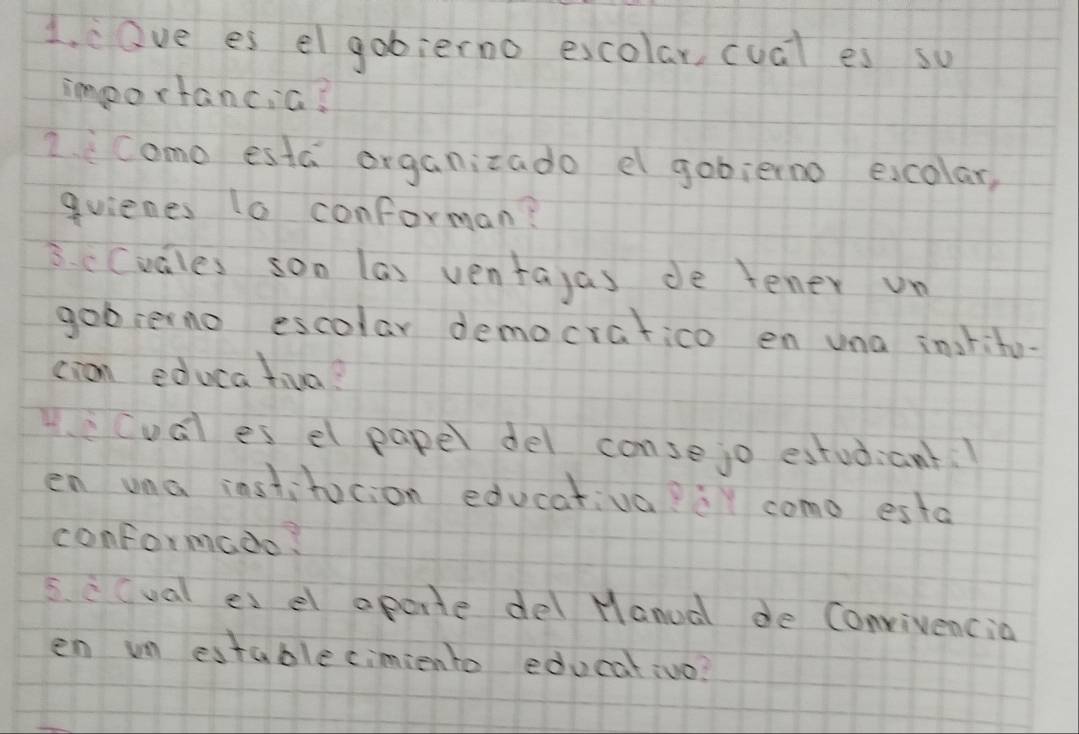 1. ¿Que es el gobierno escolar, cuál es su
importancia?
2. ¿Como está organizado el gobierno escolar,
quienes lo conforman?
3. ¿Cuáles son las ventajas de tener un
gobierno escolar democratico en una institu-
cion educativa?
4. ¿Cuál es el papel del consejo estudiantil
en una institucion educativa? ¿Y como esta
conformado?
5. ¿Cual es el aporte del Manual de Convivencia
en un establecimiento educativo?